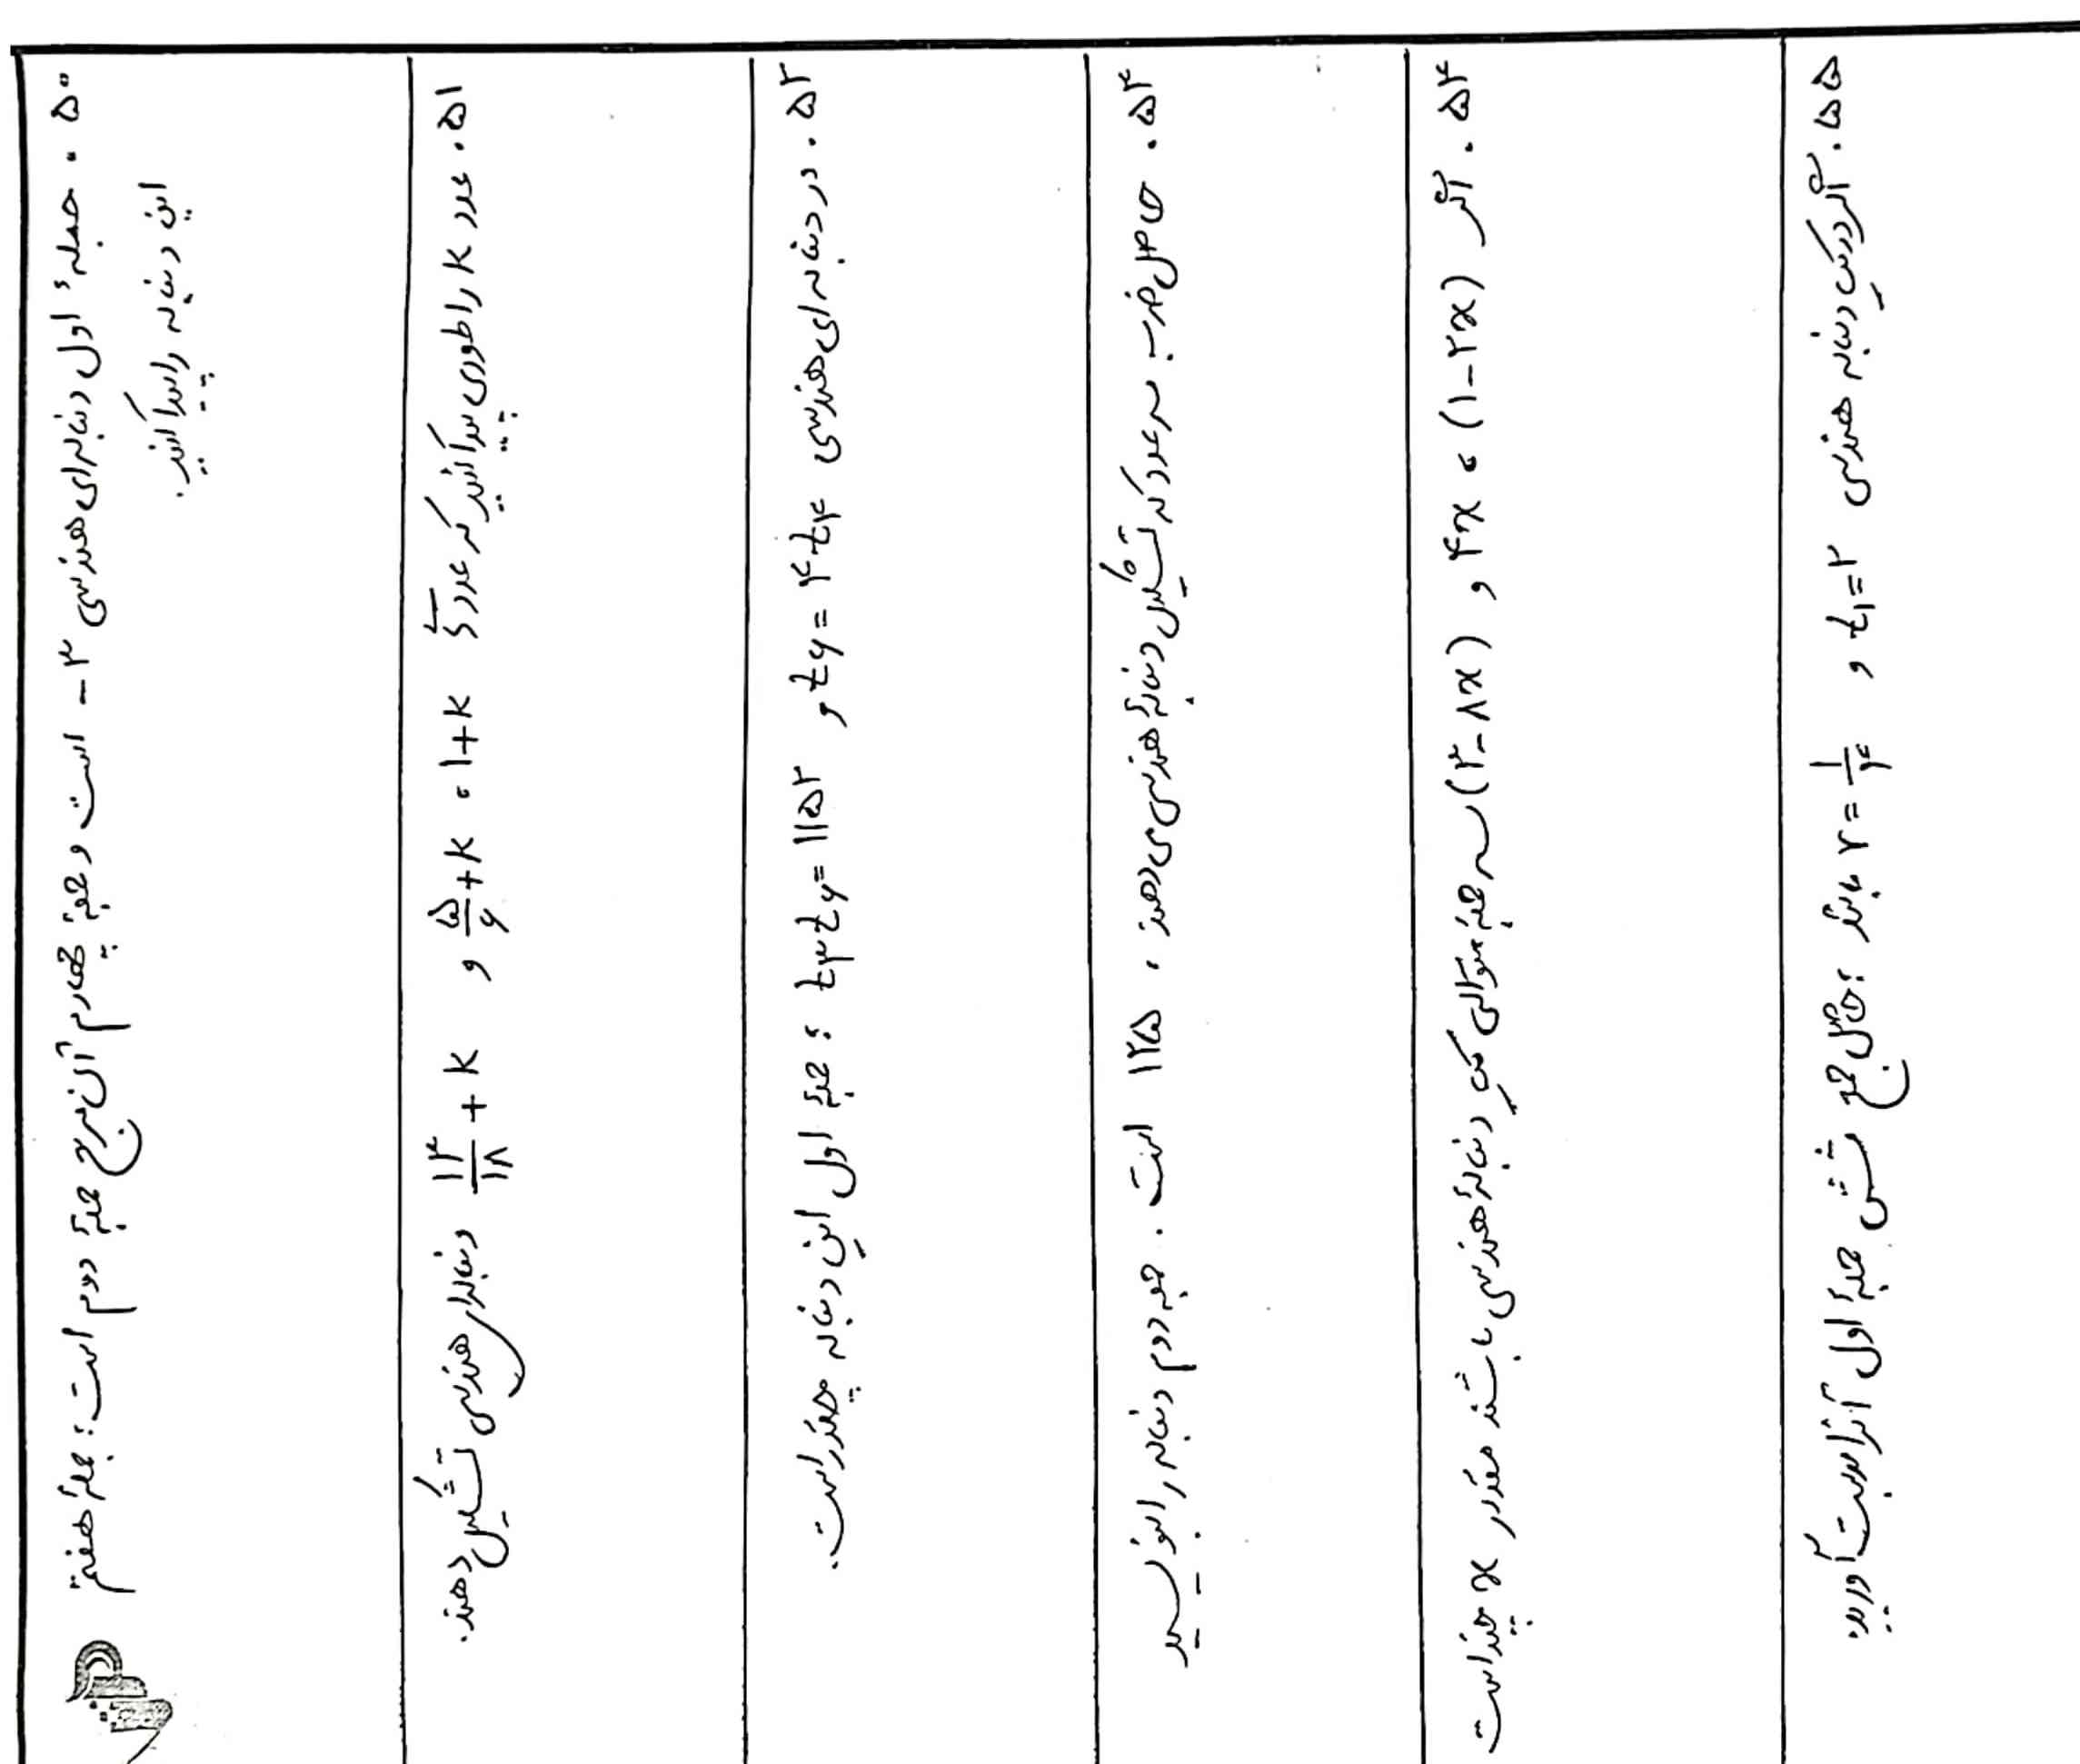 ۵۰. جملهٔ اول دنباله‌ای هندسی ۳- است و جملهٔ چهارم آن مربع جملهٔ دوم است؛ جملهٔ هفتم
این دنباله را پیدا کنید.
۵۱. عدد k را طوری پیدا کنید که عددهای k+۱، k+۵/۶ و k+۱۳/۱۸ دنباله‌ای هندسی تشکیل دهند.
۵۲. در دنباله‌ای هندسی t۶=۴t۴ و t۳t۶=۱۱۵۲؛ جملهٔ اول این دنباله چقدر است.
۵۳. حاصلضرب سه عدد که تشکیل دنبالهٔ هندسی می‌دهند، ۱۲۵ است. جمله دوم دنباله را بنویسید
۵۴. اگر (۱-۲x)، ۴x و (۳-۸x) سه جملهٔ متوالی یک دنبالهٔ هندسی باشند مقدار x چند است
۵۵. اگر در یک دنباله هندسی t۱=۲ و r=۱/۴ باشد؛ حاصل جمع شش جملهٔ اول آنرا بدست آورید.